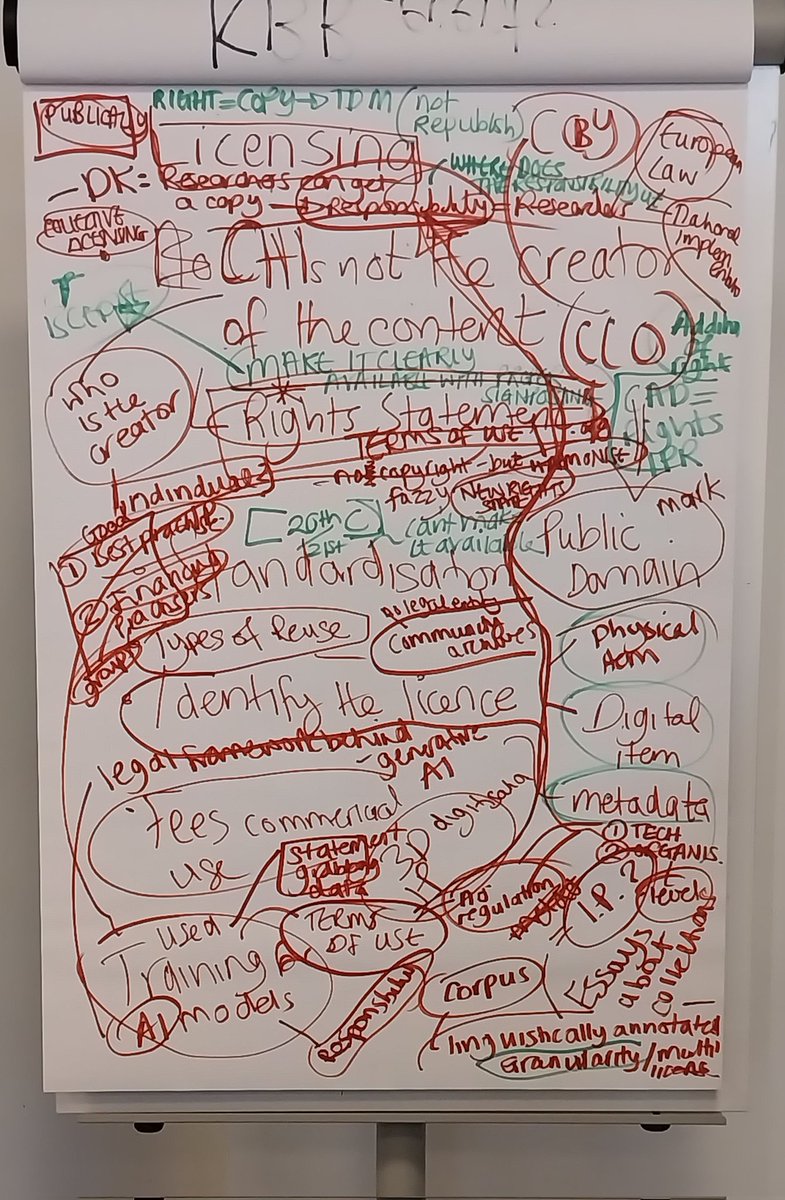 RIGHT = COPY → TDM (not Republish)
PUBLICALLY
Licensing
CC BY
European Law
National
- DK = Researchers can get a copy → Responsibility = Researchers
WHERE DOES THE RESPONSIBILITY LIE
LICENSING
CHI is not the creator
of the content (CC0)
MAKE IT CLEARLY
AVAILABLE WITH
SIGNPOSTING
who is the creator
Rights Statement
.org
TERMS OF USE
- no copyright - but
fuzzy
NEW RIGHTS
individuals
Good
① Best practise
② Financial
groups
[20th C]
21st
can't make it available
Public Domain
mark
rights
IPR
Standardisation
Types of Reuse
no legal entity
community archives
Physical
Identify the licence
Digital item
legal framework behind
- generative AI
metadata
① TECH
② ORGANIS.
Fees commercial use
statement grabbing data
3D
digitisation
regulation
I.P.?
levels
used
Training
AI models
TERMS OF USE
Responsibility
Corpus
Essays about collections
linguishcally annotated
Granularity / multi